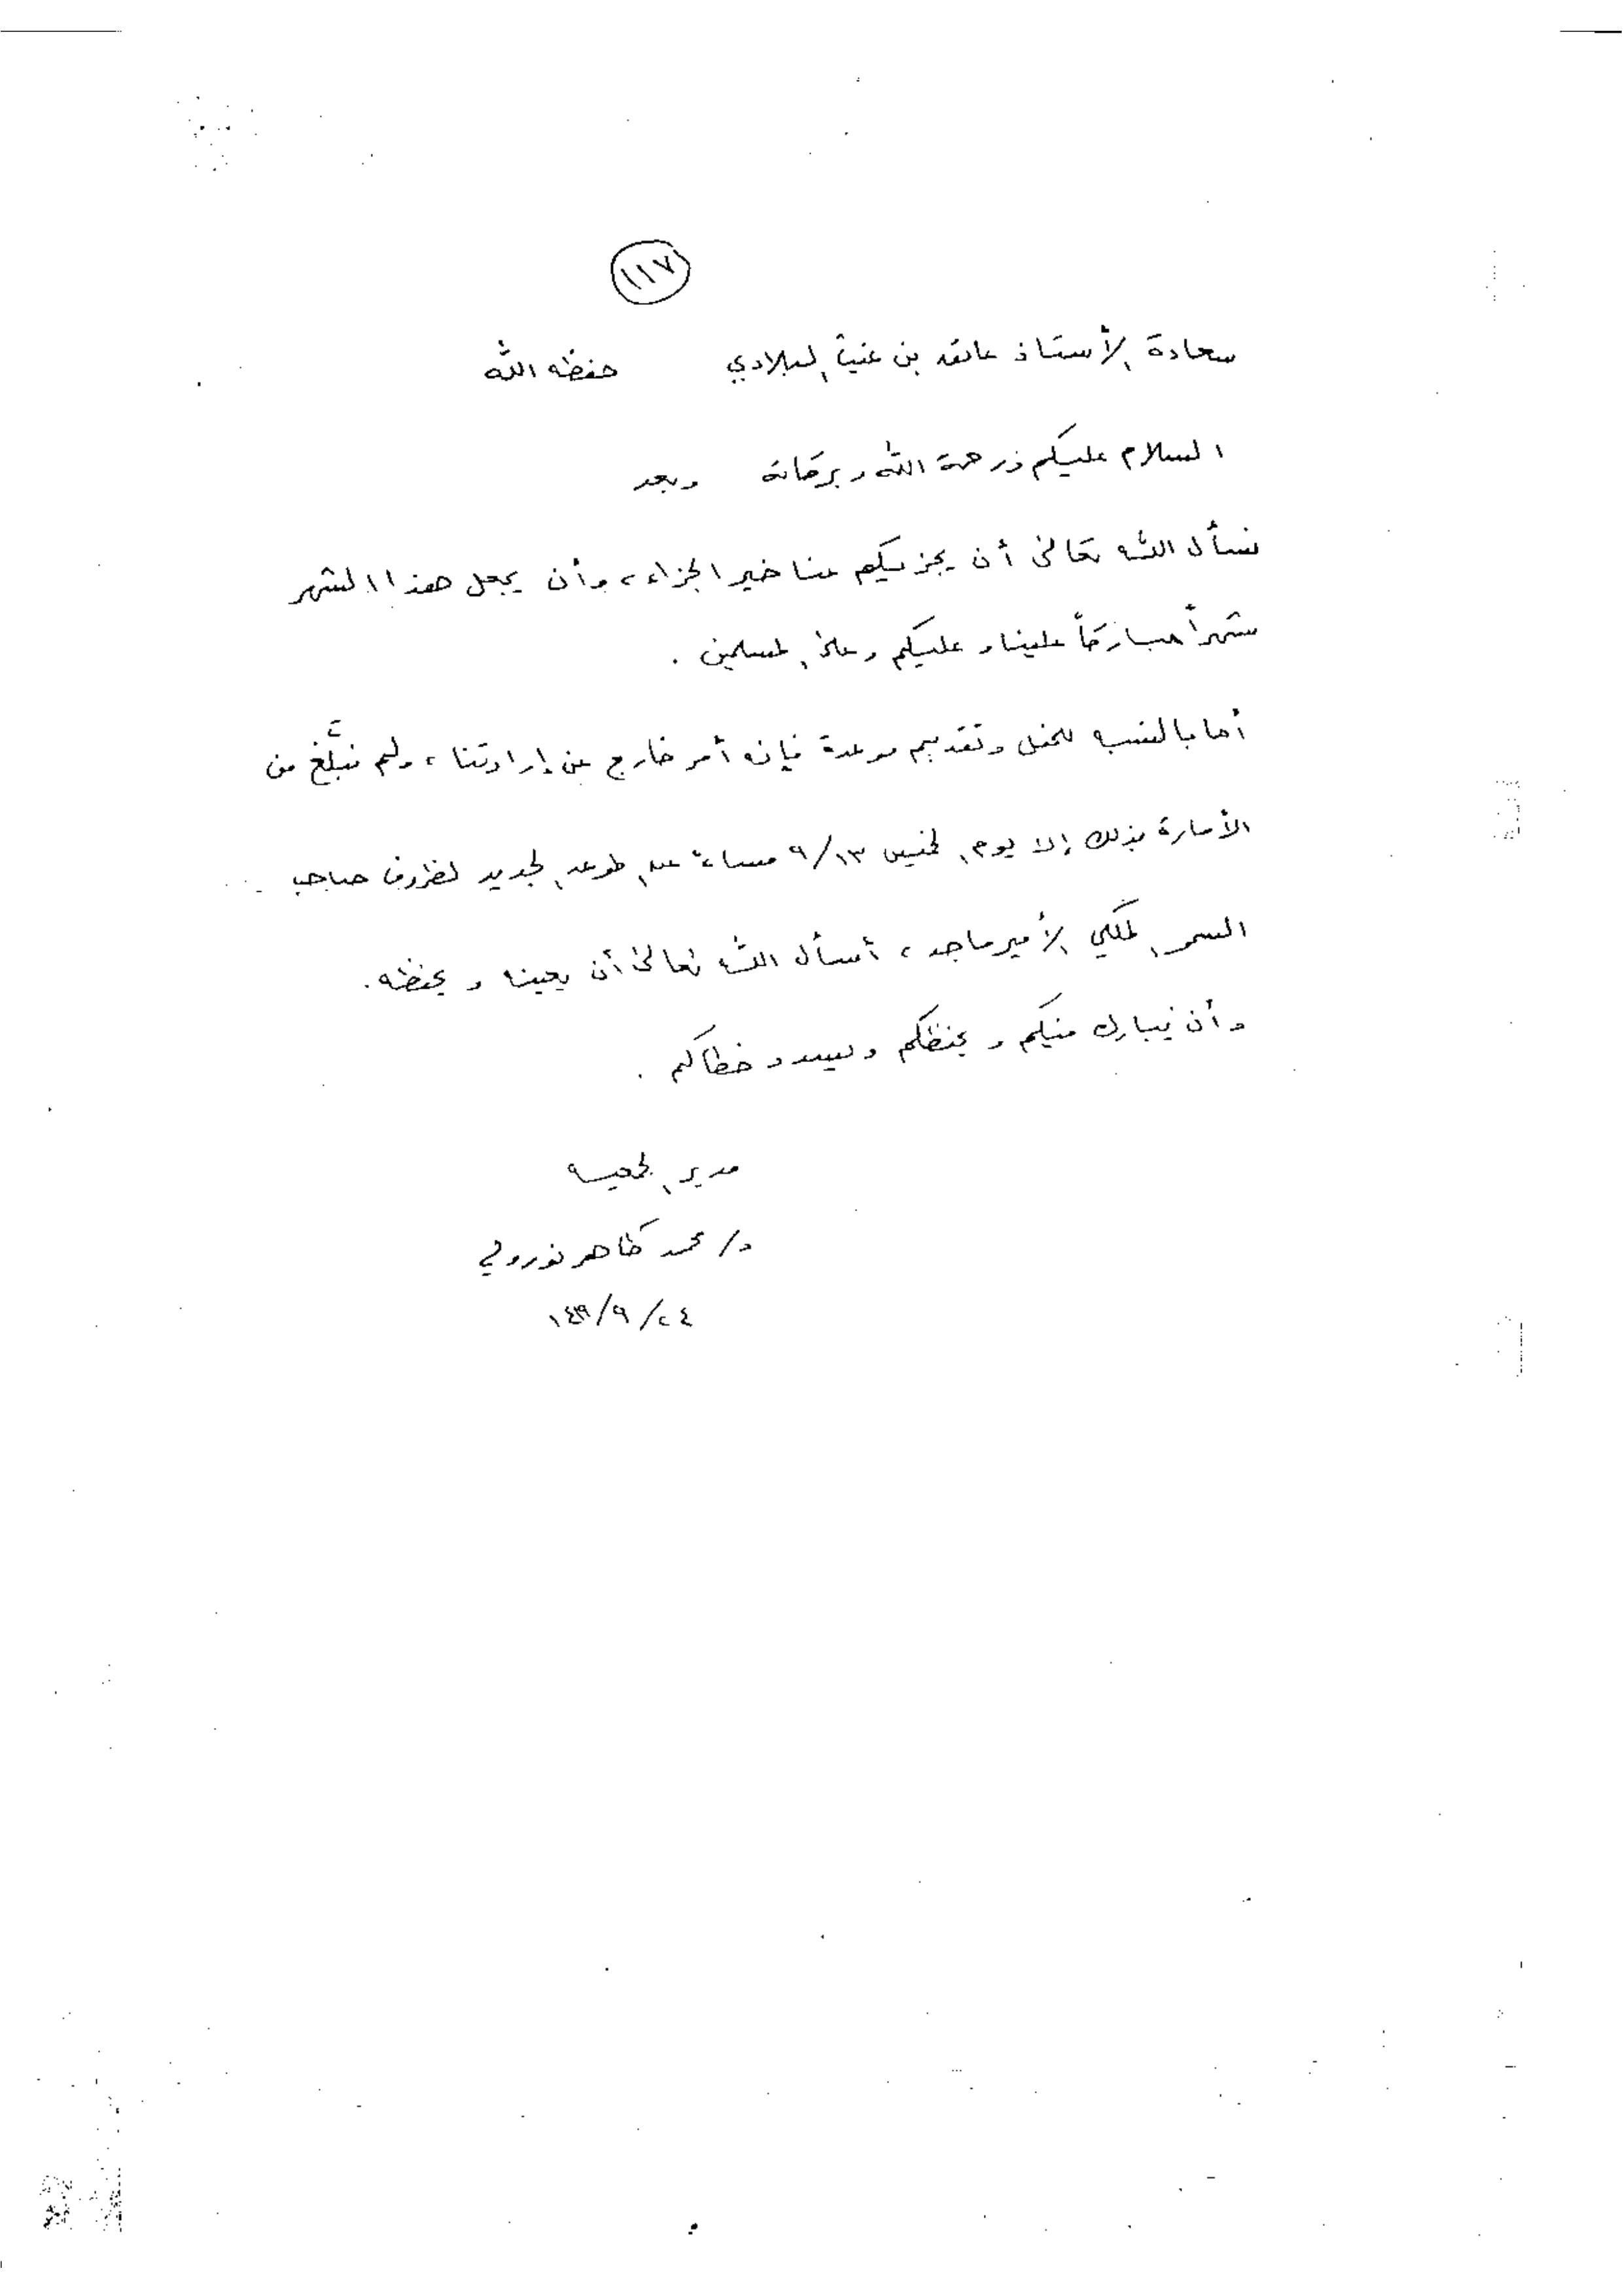 ١١٧
سعادة الأستاذ عاتق بن غيث البلادي حفظه الله
السلام عليكم ورحمة الله وبركاته وبعد
نسأل الله تعالى أن يجزيكم عنا خير الجزاء، وأن يجعل هذا الشهر
شهراً مباركاً علينا وعليكم وعلى المسلمين .
أما بالنسبه للحفل وتقديم موعدة فإنه أمر خارج عن إرادتنا، ولم نبلَّغ من
الأمارة بذلك إلا يوم الخميس ٩/١٣ مساءً عن الموعد الجديد لظروف صاحب
السمو الملكي الأمير ماجد، أسأل الله تعالى أن يعينه ويحفظه.
وأن يبارك فيكم ويحفظكم ويسدد خطاكم .
مدير الجمعيه
د/ محمد طاهر نورولي
٢٤/٩/